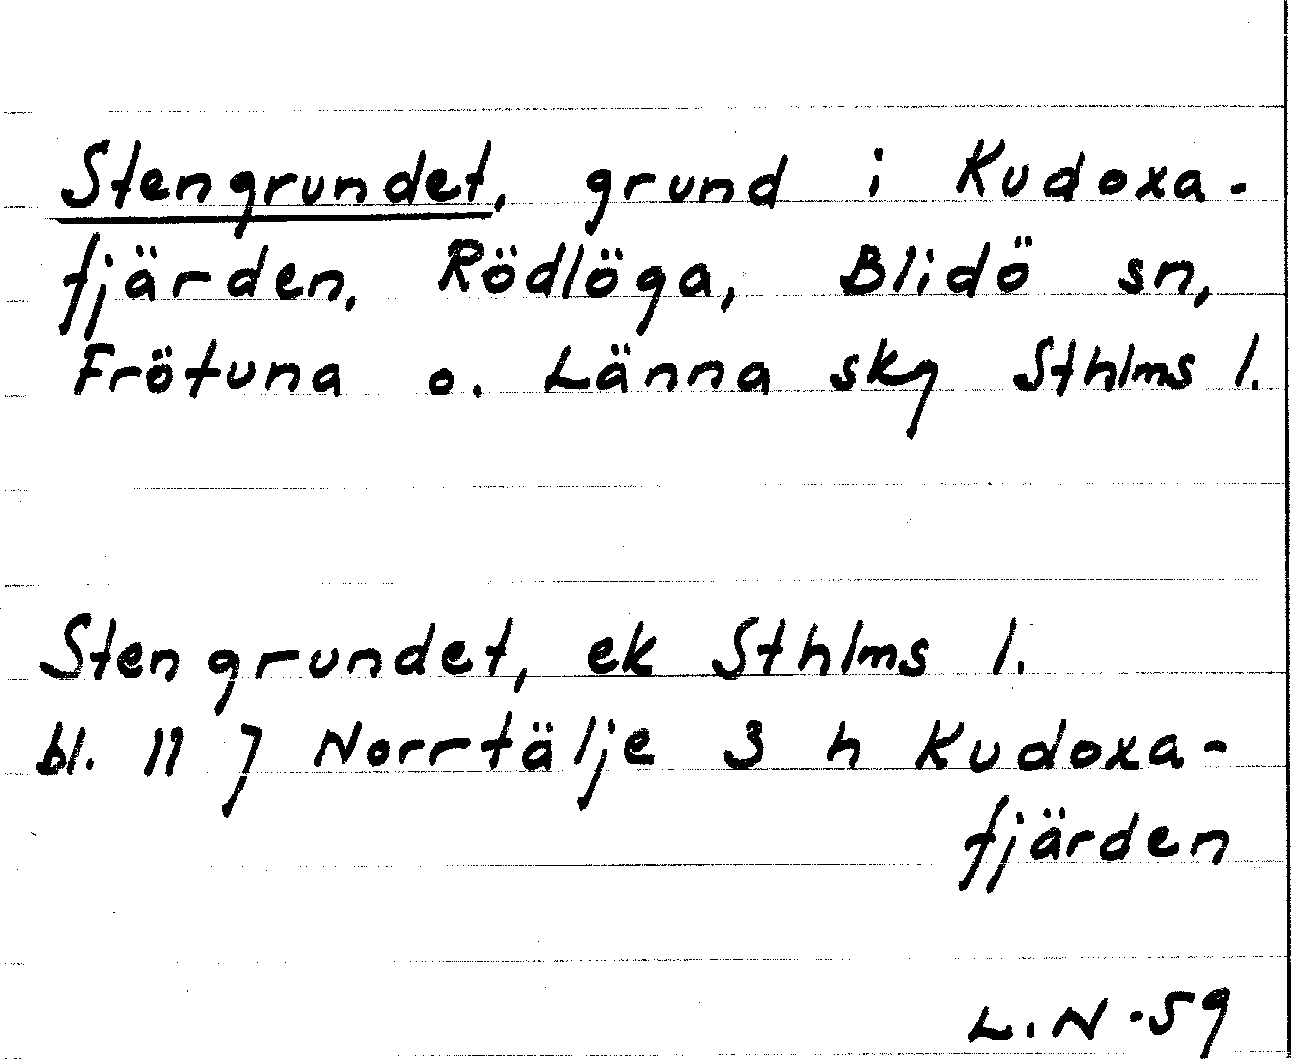 Stengrundet, grund i Kudoxa-
fjärden, Rödlöga, Blidö sn,
Frötuna o. Länna skg Sthlms l.
Stengrundet, ek Sthlms l.
bl. 11 7 Norrtälje 3 h Kudoxa-
fjärden
L.N -59